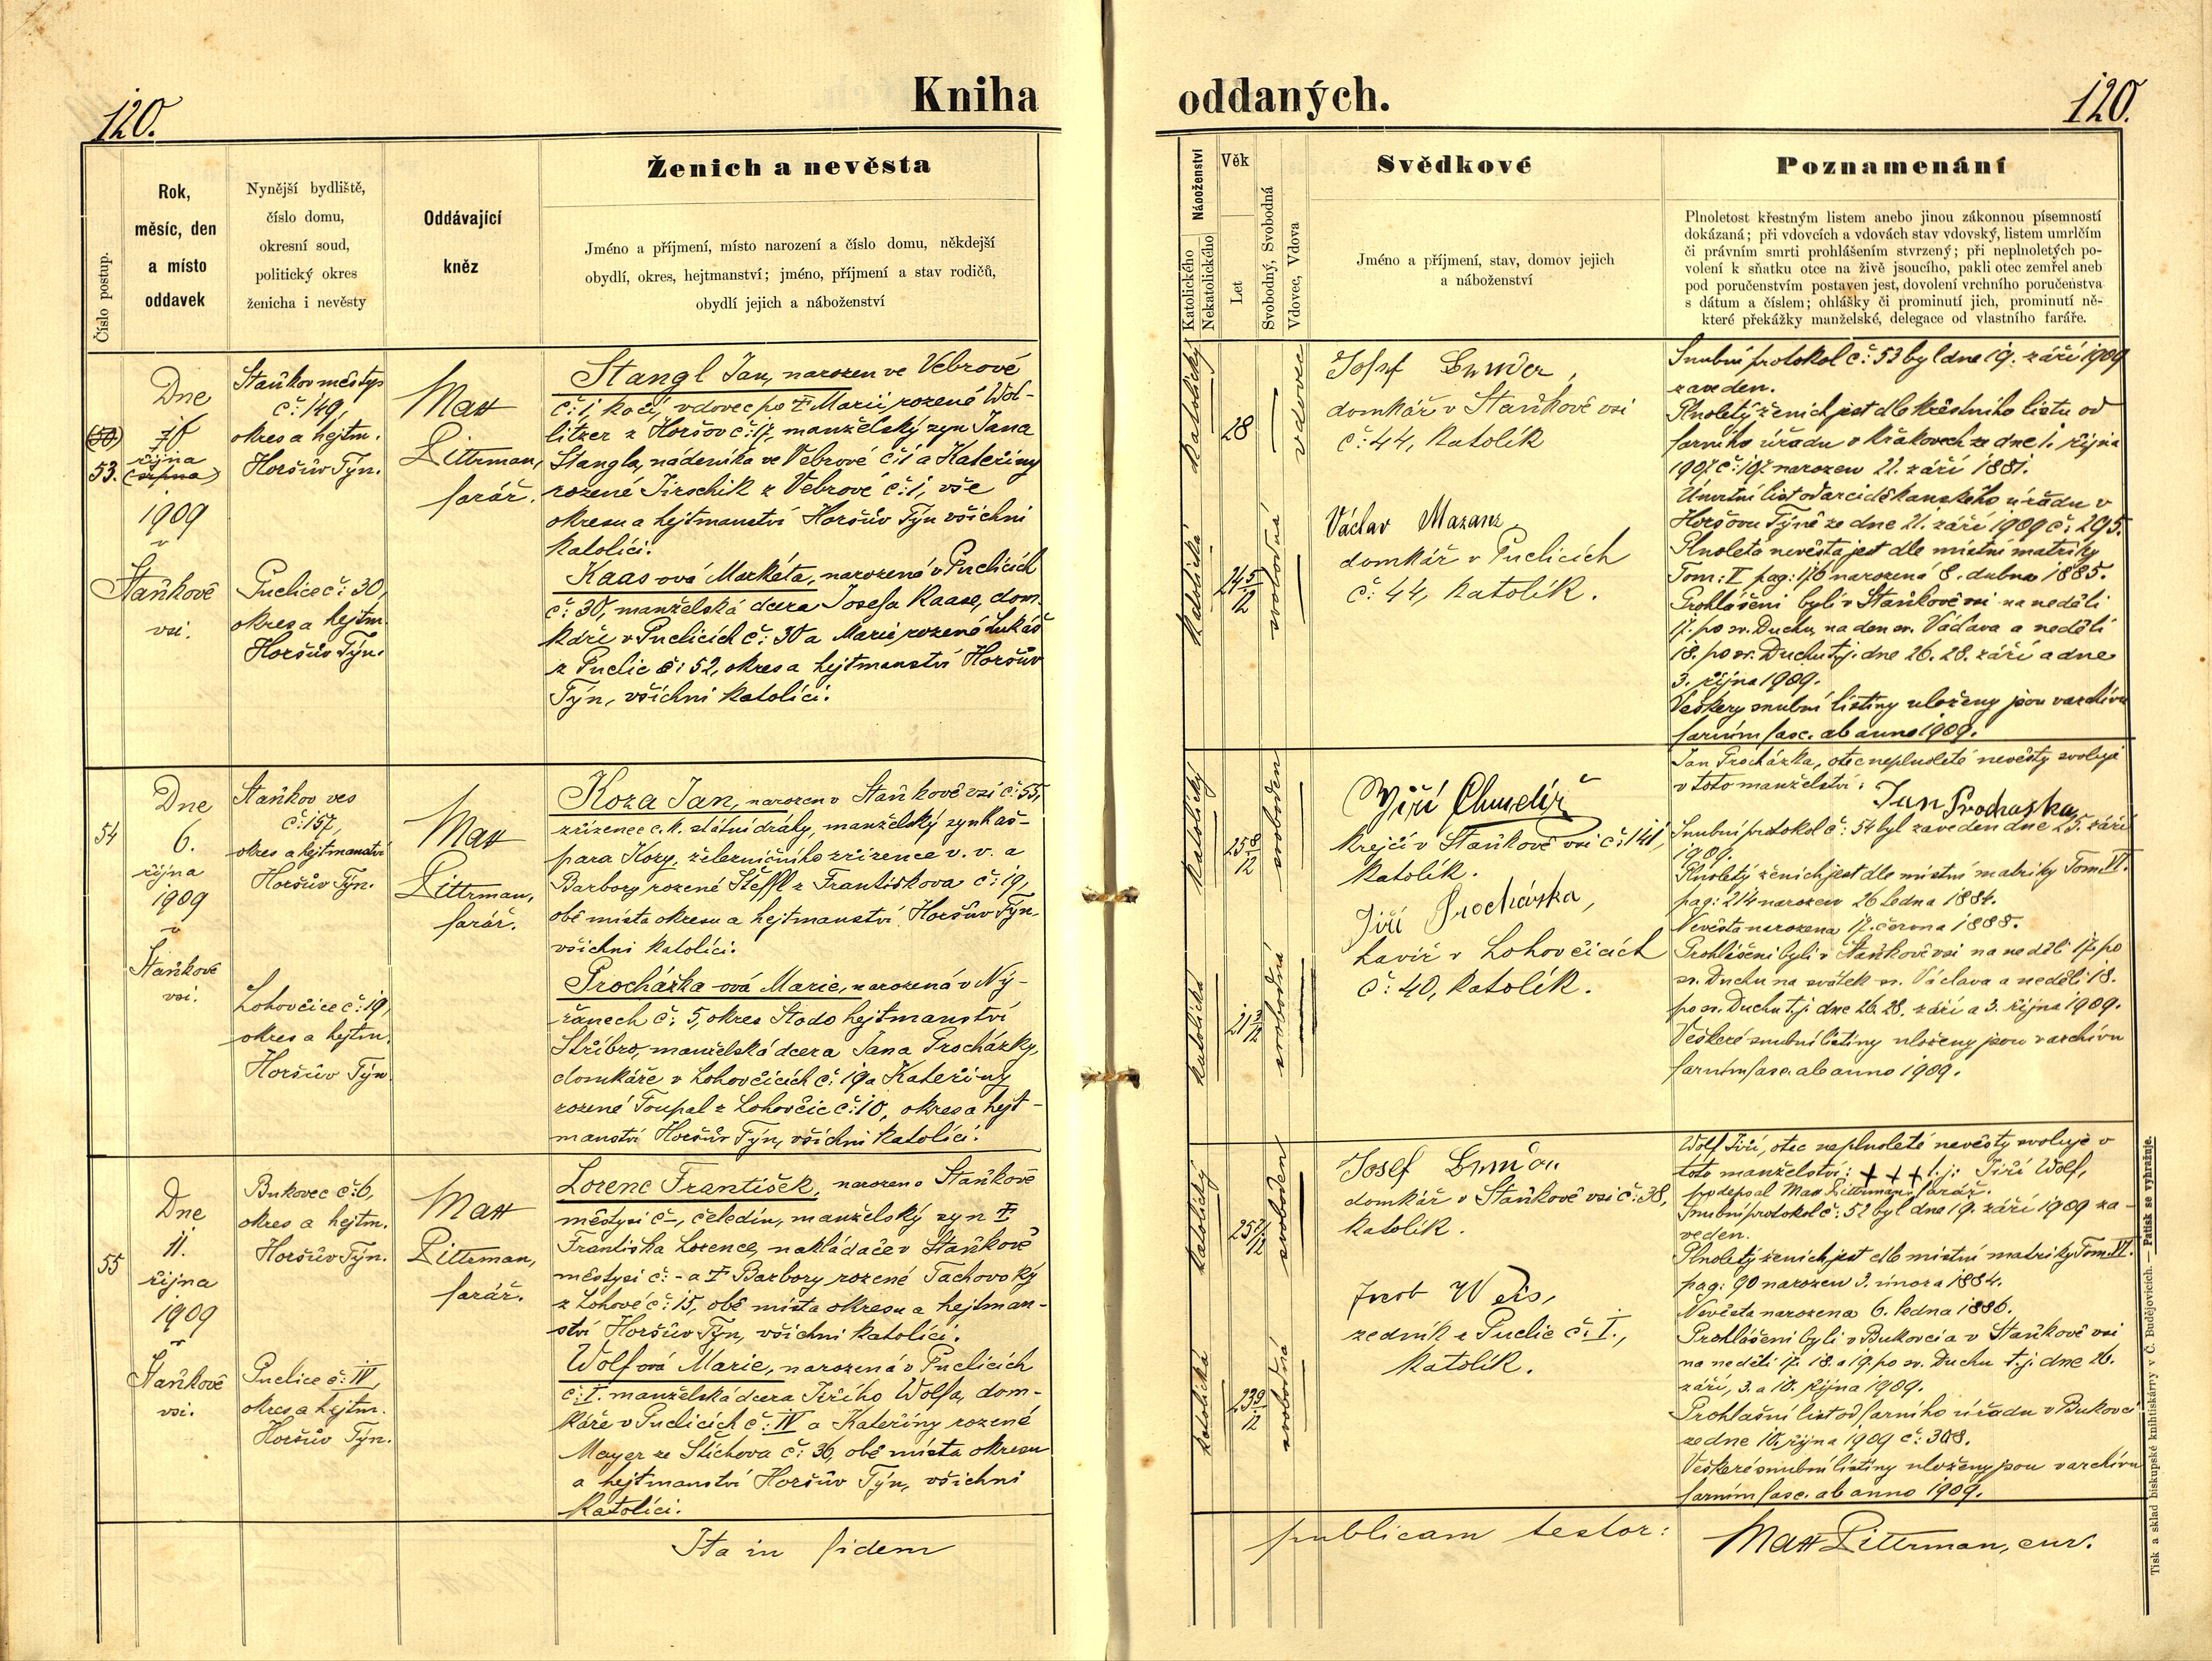 120.
Kniha
Číslo postup.
Rok,
měsíc, den
a místo
oddavek
Nynější bydliště,
číslo domu,
okresní soud,
politický okres
ženicha i nevěsty
Oddávající
kněz
Ženich a nevěsta
Jméno a příjmení, místo narození a číslo domu, někdejší
obydlí, okres, hejtmanství; jméno, příjmení a stav rodičů,
obydlí jejich a náboženství
(50)
53.
Dne
října
(srpna)
1909
v
Staňkově
vsi.
Staňkov městys
č: 149,
okres a hejtm.
Horšův Týn.
Puclice č: 30,
okres a hejtm.
Horšův Týn.
Matt
Pittrman,
farář.
Stangl Jan, narozen ve Vebrově
č: 1, kočí, vdovec po † Marii rozené Wol-
litzer z Horšov č: 17, manželský syn Jana
Stangla, nádeníka ve Vebrově č: 1 a Kateřiny
rozené Jirschik z Vebrově č: 1, vše
okresu a hejtmanství Horšův Týn všichni
katolíci.
Kaas-ová Markéta, narozená v Puclicích
č: 30, manželská dcera Josefa Kaase, dom-
káře v Puclicích č: 30 a Marie rozené Lukáš
z Puclic č: 52, okres a hejtmanství Horšův
Týn, všichni katolíci.
54
Dne
6.
října
1909
v
Staňkově
vsi.
Staňkov ves
č: 157,
okres a hejtmanství
Horšův Týn.
Lohovčice č: 19,
okres a hejtm.
Horšův Týn
Matt
Pittrman,
farář.
Koza Jan, narozen v Staňkově vsi č: 55,
zřízenec c. k. státní dráhy, manželský syn Kaš-
para Kozy, železničního zřízence v. v. a
Barbory rozené Steffl z Františkova č: 19,
obě místa okresu a hejtmanství Horšův Týn,
všichni katolíci.
Procházka-ová Marie, narozená v Ný-
řanech č: 5, okres Stodo hejtmanství
Stříbro, manželská dcera Jana Procházky,
domkáře v Lohovčicích č: 19 a Kateřiny
rozené Toupal z Lohovčic č: 10, okres a hejt-
manství Horšův Týn, všichni katolíci.
55
Dne
11.
října
1909
v
Staňkově
vsi.
Bukovec č: 6,
okres a hejtm.
Horšův Týn.
Puclice č: IV,
okres a hejtm.
Horšův Týn.
Matt
Pittrman,
farář.
Lorenc František, narozen v Staňkově
městysi č –, čeledín, manželský syn †
Františka Lorence, nakládače v Staňkově
městysi č: – a † Barbory rozené Tachovský
z Lohové č: 15, obě místa okresu a hejtman-
ství Horšův Týn, všichni katolíci.
Wolfová Marie, narozená v Puclicích
č: I. manželská dcera Jiřího Wolfa, dom-
káře v Puclicích č: IV a Kateřiny rozené
Mayer ze Štichova č: 36, obě místa okresu
a hejtmanství Horšův Týn, všichni
katolíci.
Ita in fidem
oddaných.
120.
Náboženství
Katolického
Nekatolického
Věk
Let
Svobodný, Svobodná
Vdovec, Vdova
Svědkové
Jméno a příjmení, stav, domov jejich
a náboženství
Poznamenání
Plnoletost křestným listem anebo jinou zákonnou písemností
dokázaná; při vdovcích a vdovách stav vdovský, listem umrlčím
či právním smrti prohlášením stvrzený; při neplnoletých po-
volení k sňatku otce na živě jsoucího, pakli otec zemřel aneb
pod poručenstvím postaven jest, dovolení vrchního poručenstva
s dátum a číslem; ohlášky či prominutí jich, prominutí ně-
které překážky manželské, delegace od vlastního faráře.
katolický
28
vdovec
Josef
domkář v Staňkově vsi
č: 44, katolík
katolická
24 5/12
svobodná
Václav Mazanz
domkář v Puclicích
č: 44, katolík.
Snubní protokol č: 53 byl dne 19. září 1909
zaveden.
Plnoletý ženich jest dle křestního listu od
farního úřadu v Křakovech ze dne 1. října
1907 č: 197 narozen 21. září 1881.
Úmrtní list od arciděkanského úřadu v
Horšovu Týně ze dne 21. září 1909 č: 295.
Plnoletá nevěsta jest dle místní matriky
Tom: V pag: 176 narozená 8. dubna 1885.
Prohlášeni byli v Staňkově vsi na neděli
17. po sv. Duchu, na den sv. Václava a neděli
18. po sv. Duchu t. j. dne 26. 28. září a dne
3. října 1909.
Veškery snubní listiny uloženy jsou v archivu
farním fasc. ab anno 1909.
katolický
25 8/12
svoboden
Jiří Chmelíř
krejčí v Staňkově vsi č: 141,
katolík.
katolická
21 3/12
svobodná
Jiří Procházka,
havíř v Lohovčicích
č: 40, katolík.
Jan Procházka, otec neplnoleté nevěsty svoluje
v toto manželství:
Jan Prochaska
Snubní protokol č: 54 byl zaveden dne 25. září
1909.
Plnoletý ženich jest dle místní matriky Tom. VI.
pag: 214 narozen 26 ledna 1884.
Nevěsta narozena 17. června 1888.
Prohlášeni byli v Staňkově vsi na neděli 17. po
sv. Duchu na svátek sv. Václava a neděli 18.
po sv. Duchu t. j. dne 26. 28. září a 3. října 1909.
Veškeré snubní listiny uloženy jsou v archivu
farním fasc. ab anno 1909.
katolický
svoboden
Josef
domkář v Staňkově vsi č: 38,
katolík.
katolická
23 9/12
svobodná
Jacob Weis,
zedník z Puclic č: I.,
katolík.
Wolf Jiří, otec neplnoleté nevěsty svoluje v
toto manželství: + + + t. j: Jiří Wolf,
podepsal Matt Pittrman farář.
Snubní protokol č: 52 byl dne 19. září 1909 za-
veden.
Plnoletý ženich jest dle místní matriky Tom. VI.
pag: 90 narozen 3. února 1884.
Nevěsta narozena 6. ledna 1886.
Prohlášeni byli v Bukovci a v Staňkově vsi
na neděli 17. 18. a 19. po sv. Duchu t. j. dne 26.
září, 3. a 10. října 1909.
Prohlašní list od farního úřadu v Bukovci
ze dne 10. října 1909 č: 308.
Veškeré snubní listiny uloženy jsou v archivu
farním fasc. ab anno 1909.
publicam testor:
Matt Pittrman, cur.
Tisk a sklad biskupské knihtiskárny v Č. Budějovicích. — Patisk se vyhražuje.